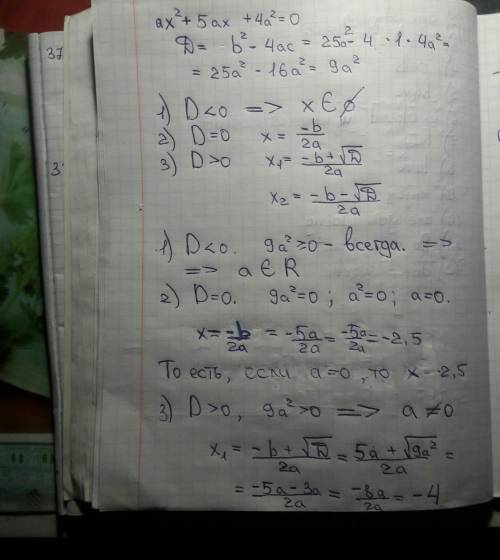 ax² + 5ax + 4a² = 0
D = b² - 4ac = 25a² - 4 · 1 · 4a² =
= 25a² - 16a² = 9a²
1) D < 0 => x ∈ ∅
2) D = 0 x = -b/2a
3) D > 0 x₁ = -b + √D/2a
x₂ = -b - √D/2a
1) D < 0. 9a² > 0 - всегда. =>
=> a ∈ R
2) D = 0. 9a² = 0 ; a² = 0 ; a = 0.
x = -b/2a = -5a/2a = -5a/2a = -2,5
То есть, если a = 0, то x -2,5
3) D > 0, 9a² > 0 => a ≠ 0
x₁ = -b + √D/2a = 5a + √9a²/2a =
= -5a - 3a/2a = -8a/2a = -4